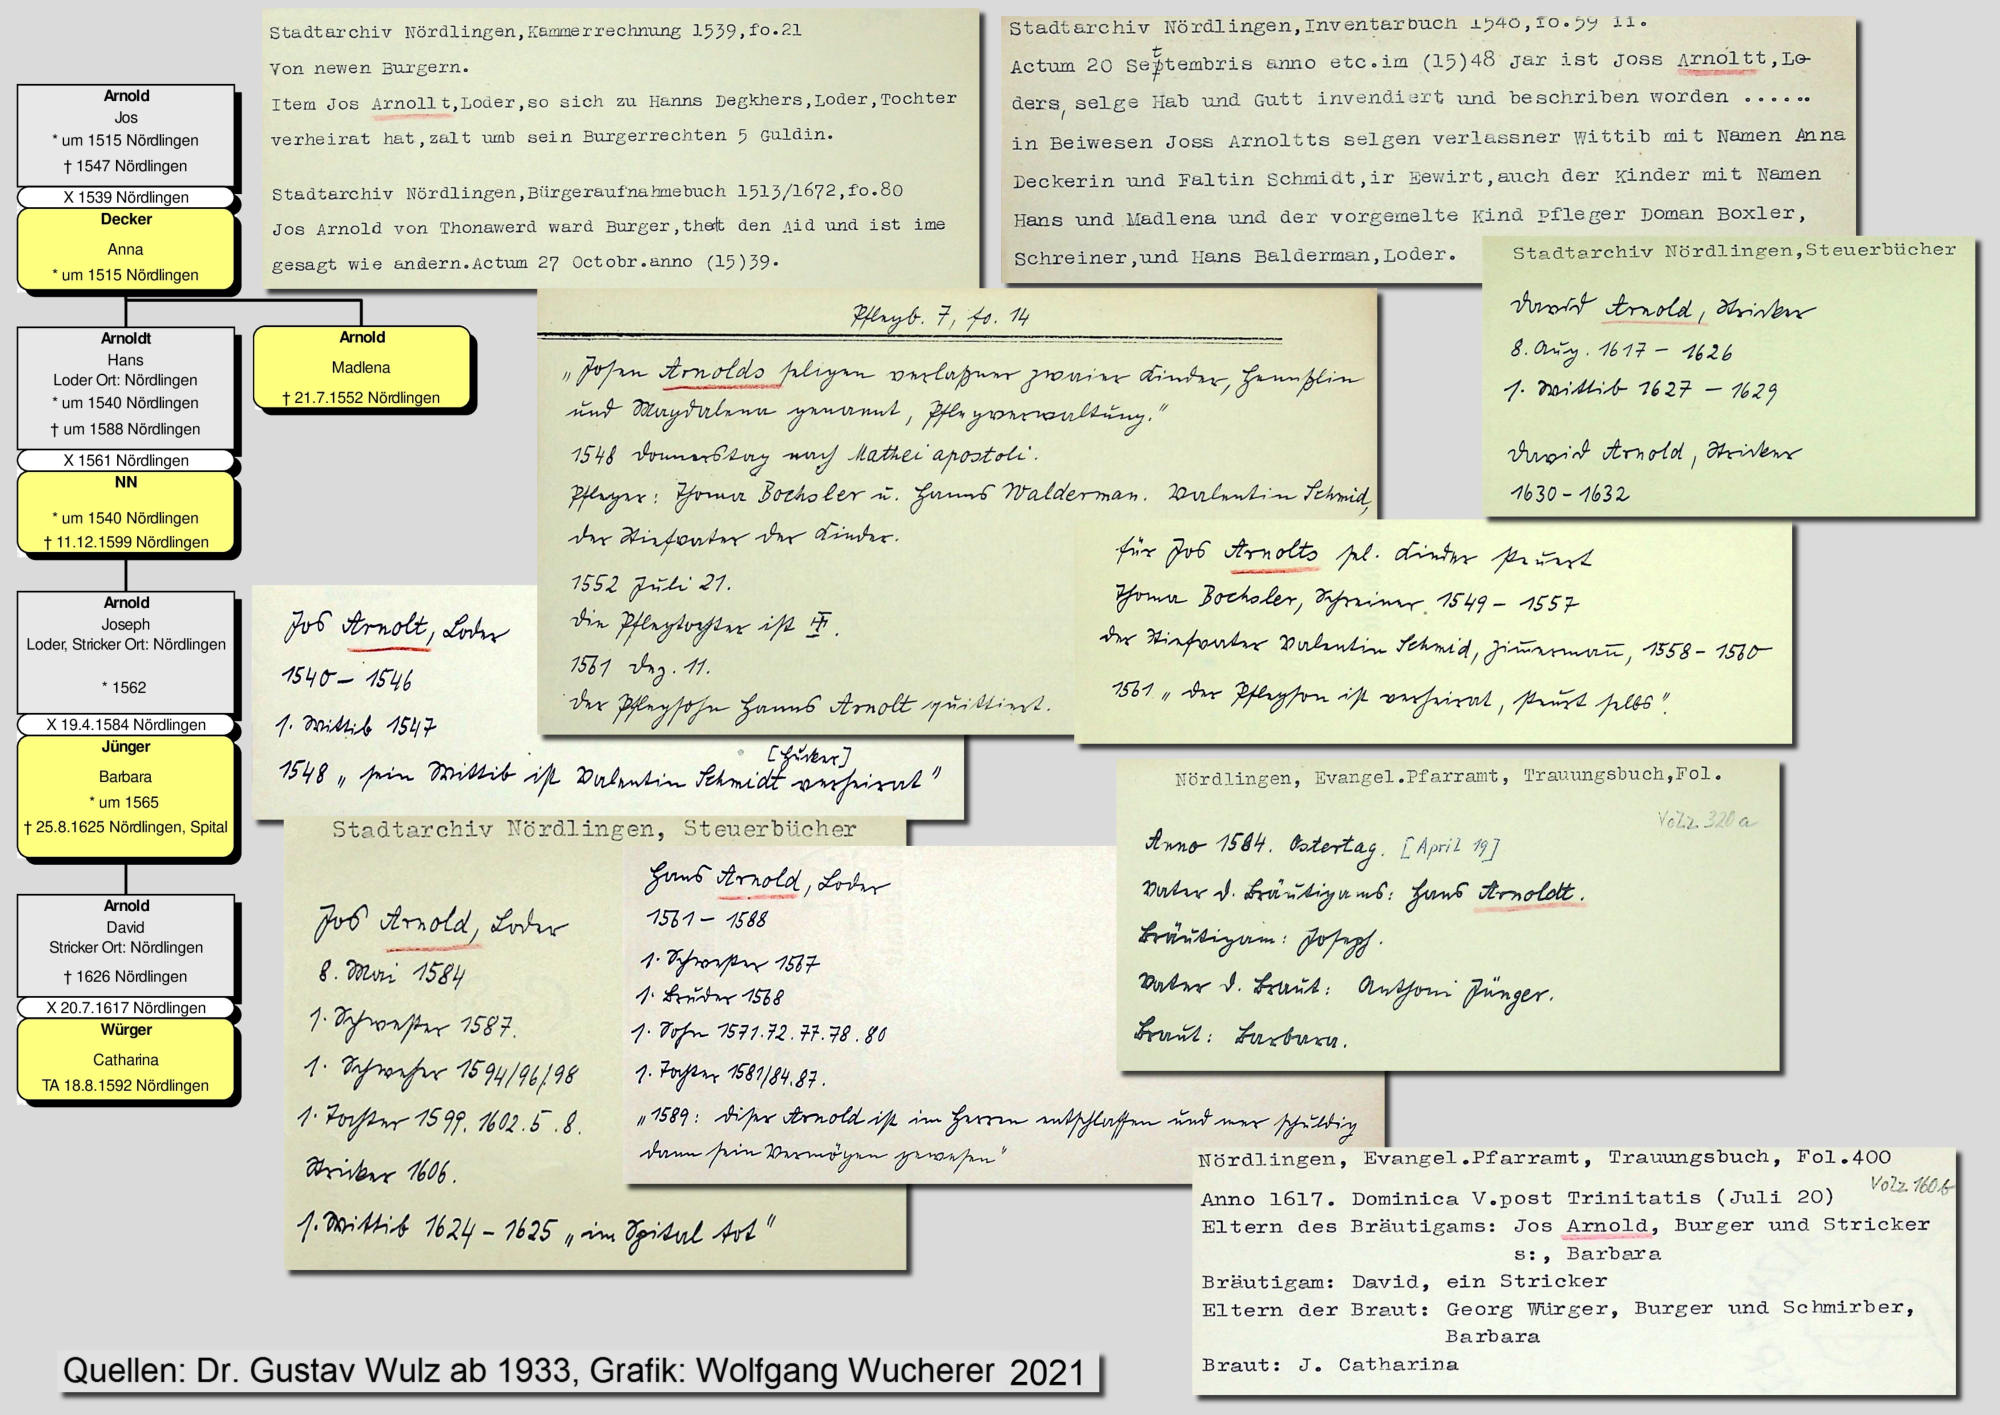 Arnold
Jos
* um 1515 Nördlingen
† 1547 Nördlingen
X 1539 Nördlingen
Decker
Anna
* um 1515 Nördlingen
Arnoldt
Hans
Loder Ort: Nördlingen
* um 1540 Nördlingen
† um 1588 Nördlingen
Arnold
Madlena
† 21.7.1552 Nördlingen
X 1561 Nördlingen
NN
* um 1540 Nördlingen
† 11.12.1599 Nördlingen
Arnold
Joseph
Loder, Stricker Ort: Nördlingen
* 1562
X 19.4.1584 Nördlingen
Jünger
Barbara
* um 1565
† 25.8.1625 Nördlingen, Spital
Arnold
David
Stricker Ort: Nördlingen
† 1626 Nördlingen
X 20.7.1617 Nördlingen
Würger
Catharina
TA 18.8.1592 Nördlingen
Stadtarchiv Nördlingen,Kammerrechnung 1539,fo.21
Von newen Burgern.
Item Jos Arnollt,Loder,so sich zu Hanns Degkhers,Loder,Tochter
verheirat hat,zalt umb sein Burgerrechten 5 Guldin.
Stadtarchiv Nördlingen,Bürgeraufnahmebuch 1513/1672,fo.80
Jos Arnold von Thonawerd ward Burger,thet den Aid und ist ime
gesagt wie andern.Actum 27 Octobr.anno (15)39.
Stadtarchiv Nördlingen,Inventarbuch 1548,fo.59 ff.
Actum 20 Septembris anno etc.im (15)48 jar ist Joss Arnoltt,Lo-
ders, selge Hab und Gutt invendiert und beschriben worden ......
in Beiwesen Joss Arnoltts selgen verlassner Wittib mit Namen Anna
Deckerin und Faltin Schmidt,ir Eewirt,auch der Kinder mit Namen
Hans und Madlena und der vorgemelte Kind Pfleger Doman Boxler,
Schreiner,und Hans Balderman,Loder.
Stadtarchiv Nördlingen,Steuerbücher
David Arnold, Stricker
8. Aug. 1617 – 1626
1. Wittib 1627 – 1629
David Arnold, Stricker
1630 – 1632
Pflegb. 7, fo. 14
„Josen Arnolds seligen verlaßner zwaier Kinder, Hennßlin
und Magdalena genannt, Pflegverwaltung."
1548 Donnerstag nach Mathei apostoli.
Pfleger: Thoma Bochsler u. Hanns Walderman. Valentin Schmid,
der Stiefvater der Kinder.
1552 Juli 21.
Die Pflegtochter ist †.
1561 Dez. 11.
Der Pflegsohn Hanns Arnolt quittiert.
für Jos Arnolts sel. Kinder steuert
Thoma Bochsler, Schreiner 1549 – 1557
der Stiefvater Valentin Schmid, Zimermann, 1558 – 1560
1561 „der Pflegson ist verheirat, steurt selbs".
Jos Arnolt, Loder
1540 – 1546
1. Wittib 1547
[Hucker]
1548 „sein Wittib ist Valentin Schmidt verheirat"
Stadtarchiv Nördlingen, Steuerbücher
Jos Arnold, Loder
8. Mai 1584
1. Schwester 1587.
1. Schweher 1594/96/98
1. Tochter 1599. 1602. 5. 8.
Stricker 1606.
1. Wittib 1624 – 1625 „im Spital tot"
Hans Arnold, Loder
1561 – 1588
1. Schwester 1567
1. Bruder 1568
1. Sohn 1571.72.77.78.80
1. Tochter 1581/84.87.
„1589: diser Arnold ist im Herren entschlaffen und mer schuldig
dann sein Vermögen gewesen"
Nördlingen, Evangel.Pfarramt, Trauungsbuch,Fol.
Volz 320a
Anno 1584. Ostertag. [April 19]
Vater d. Bräutigams: Hans Arnoldt.
Bräutigam: Joseph.
Vater d. Braut: Anthoni Jünger.
Braut: Barbara.
Nördlingen, Evangel.Pfarramt, Trauungsbuch, Fol.400
Volz 160b
Anno 1617. Dominica V.post Trinitatis (Juli 20)
Eltern des Bräutigams: Jos Arnold, Burger und Stricker
s:, Barbara
Bräutigam: David, ein Stricker
Eltern der Braut: Georg Würger, Burger und Schmirber,
Barbara
Braut: J. Catharina
Quellen: Dr. Gustav Wulz ab 1933, Grafik: Wolfgang Wucherer 2021